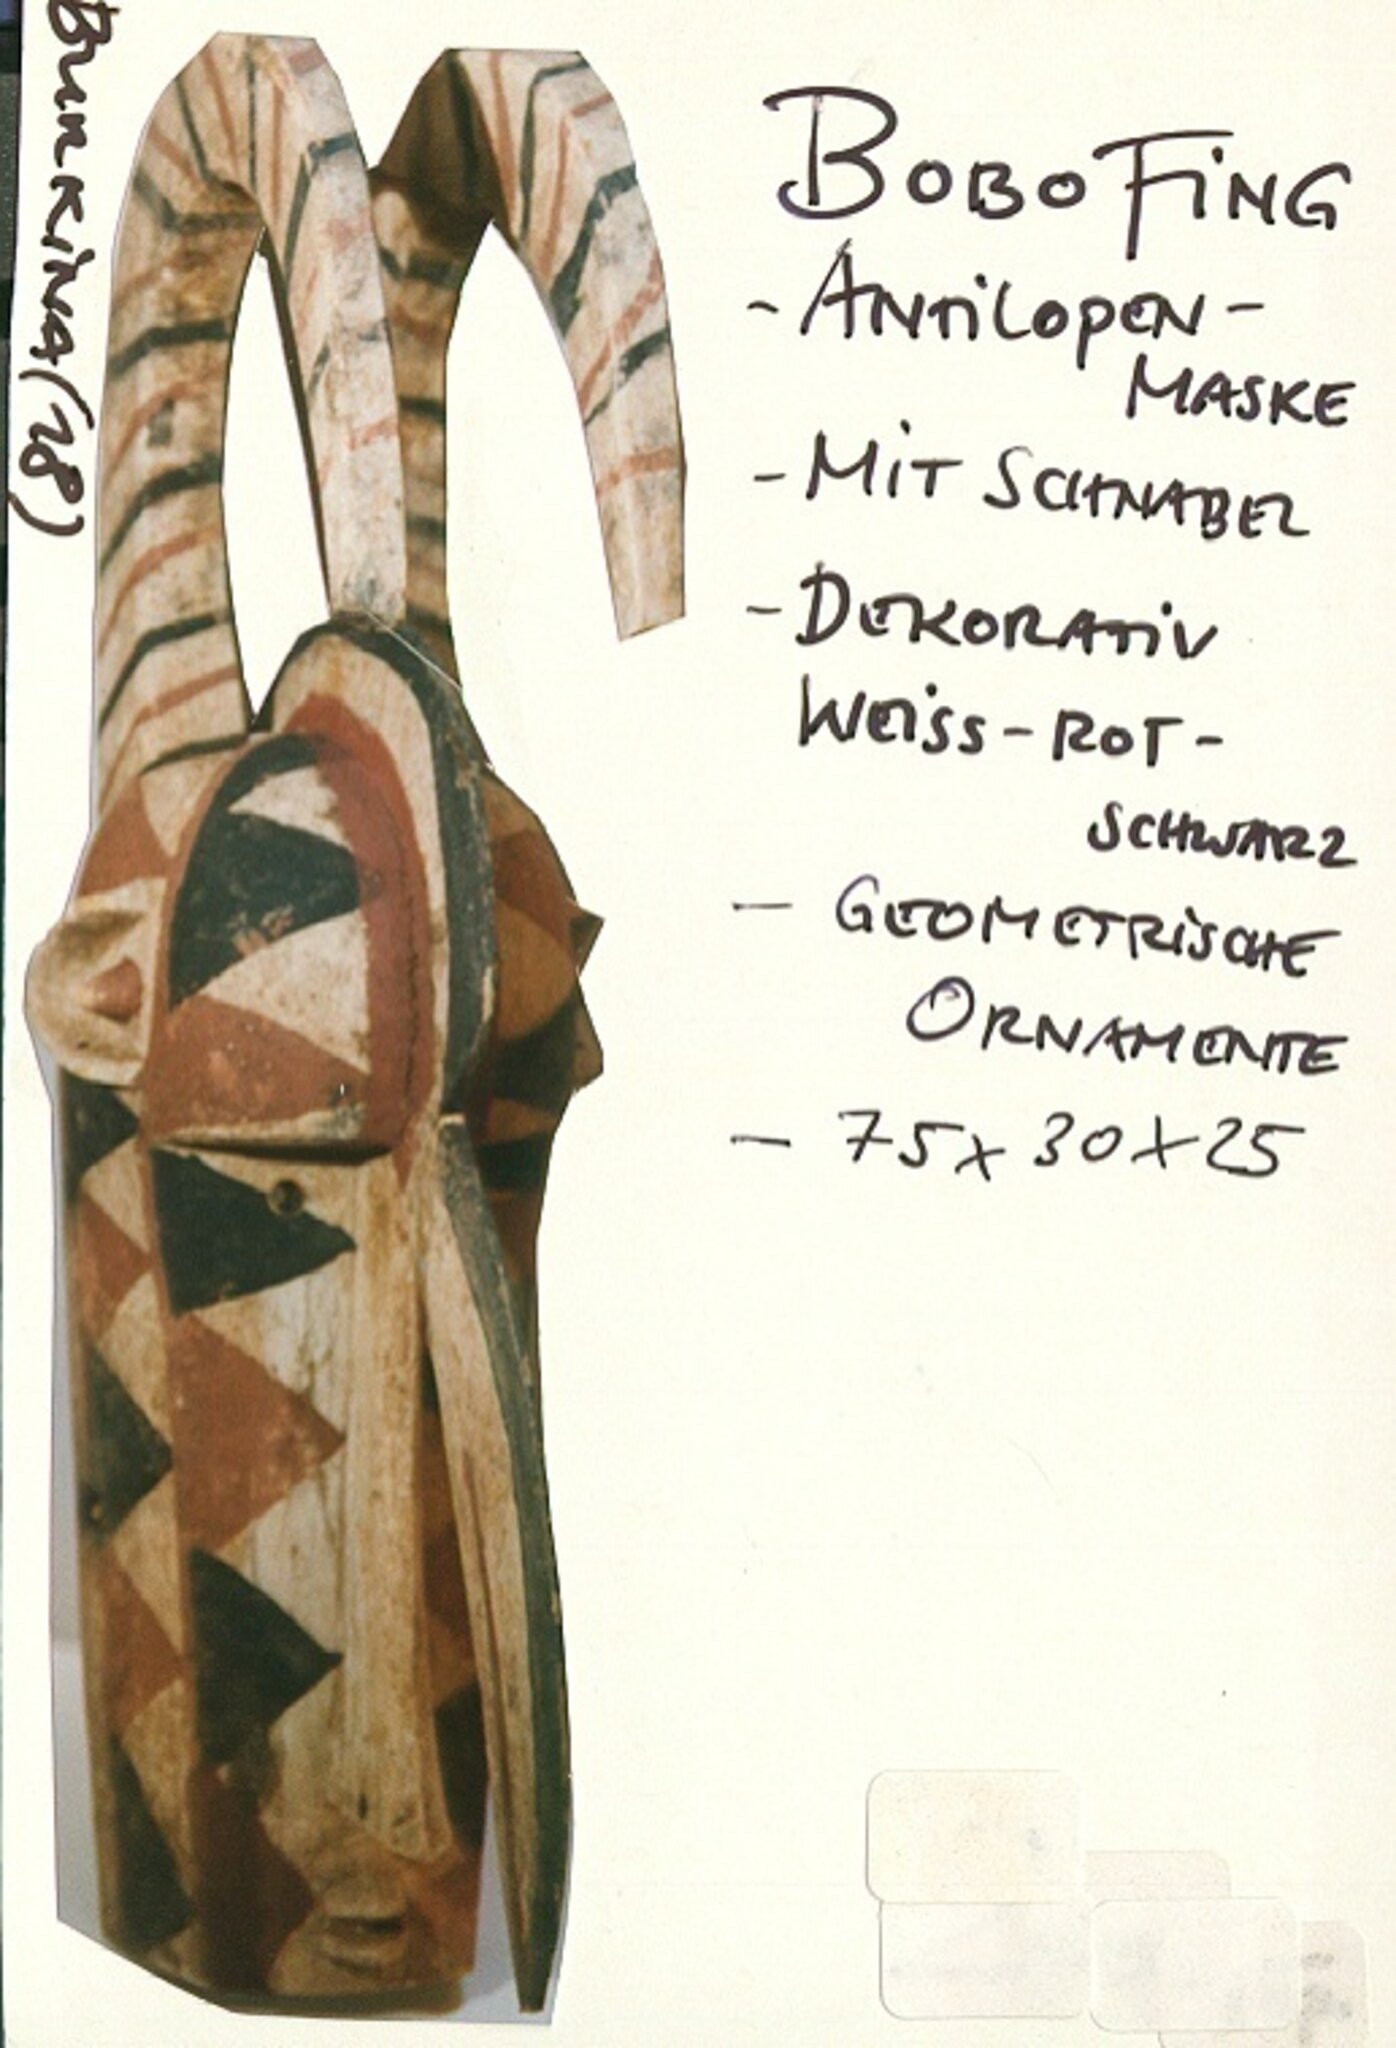 Burkina (28)
BOBO FiNG
- ANTiLOPEN-
MASKE
- MiT SCHNABEL
- DEKORATiV
WEiSS-ROT-
SCHWARZ
- GEOMETRiSCHE
ORNAMENTE
- 75x30x25